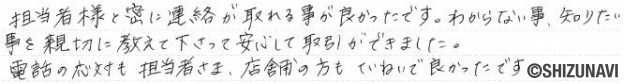 担当者様と密に連絡が取れる事が良かったです。わからない事、知りたい
事を親切に教えて下さって安心して取引ができました。
電話の応対も担当者さま、店舗の方もていねいで良かったです
©SHIZUNAVI